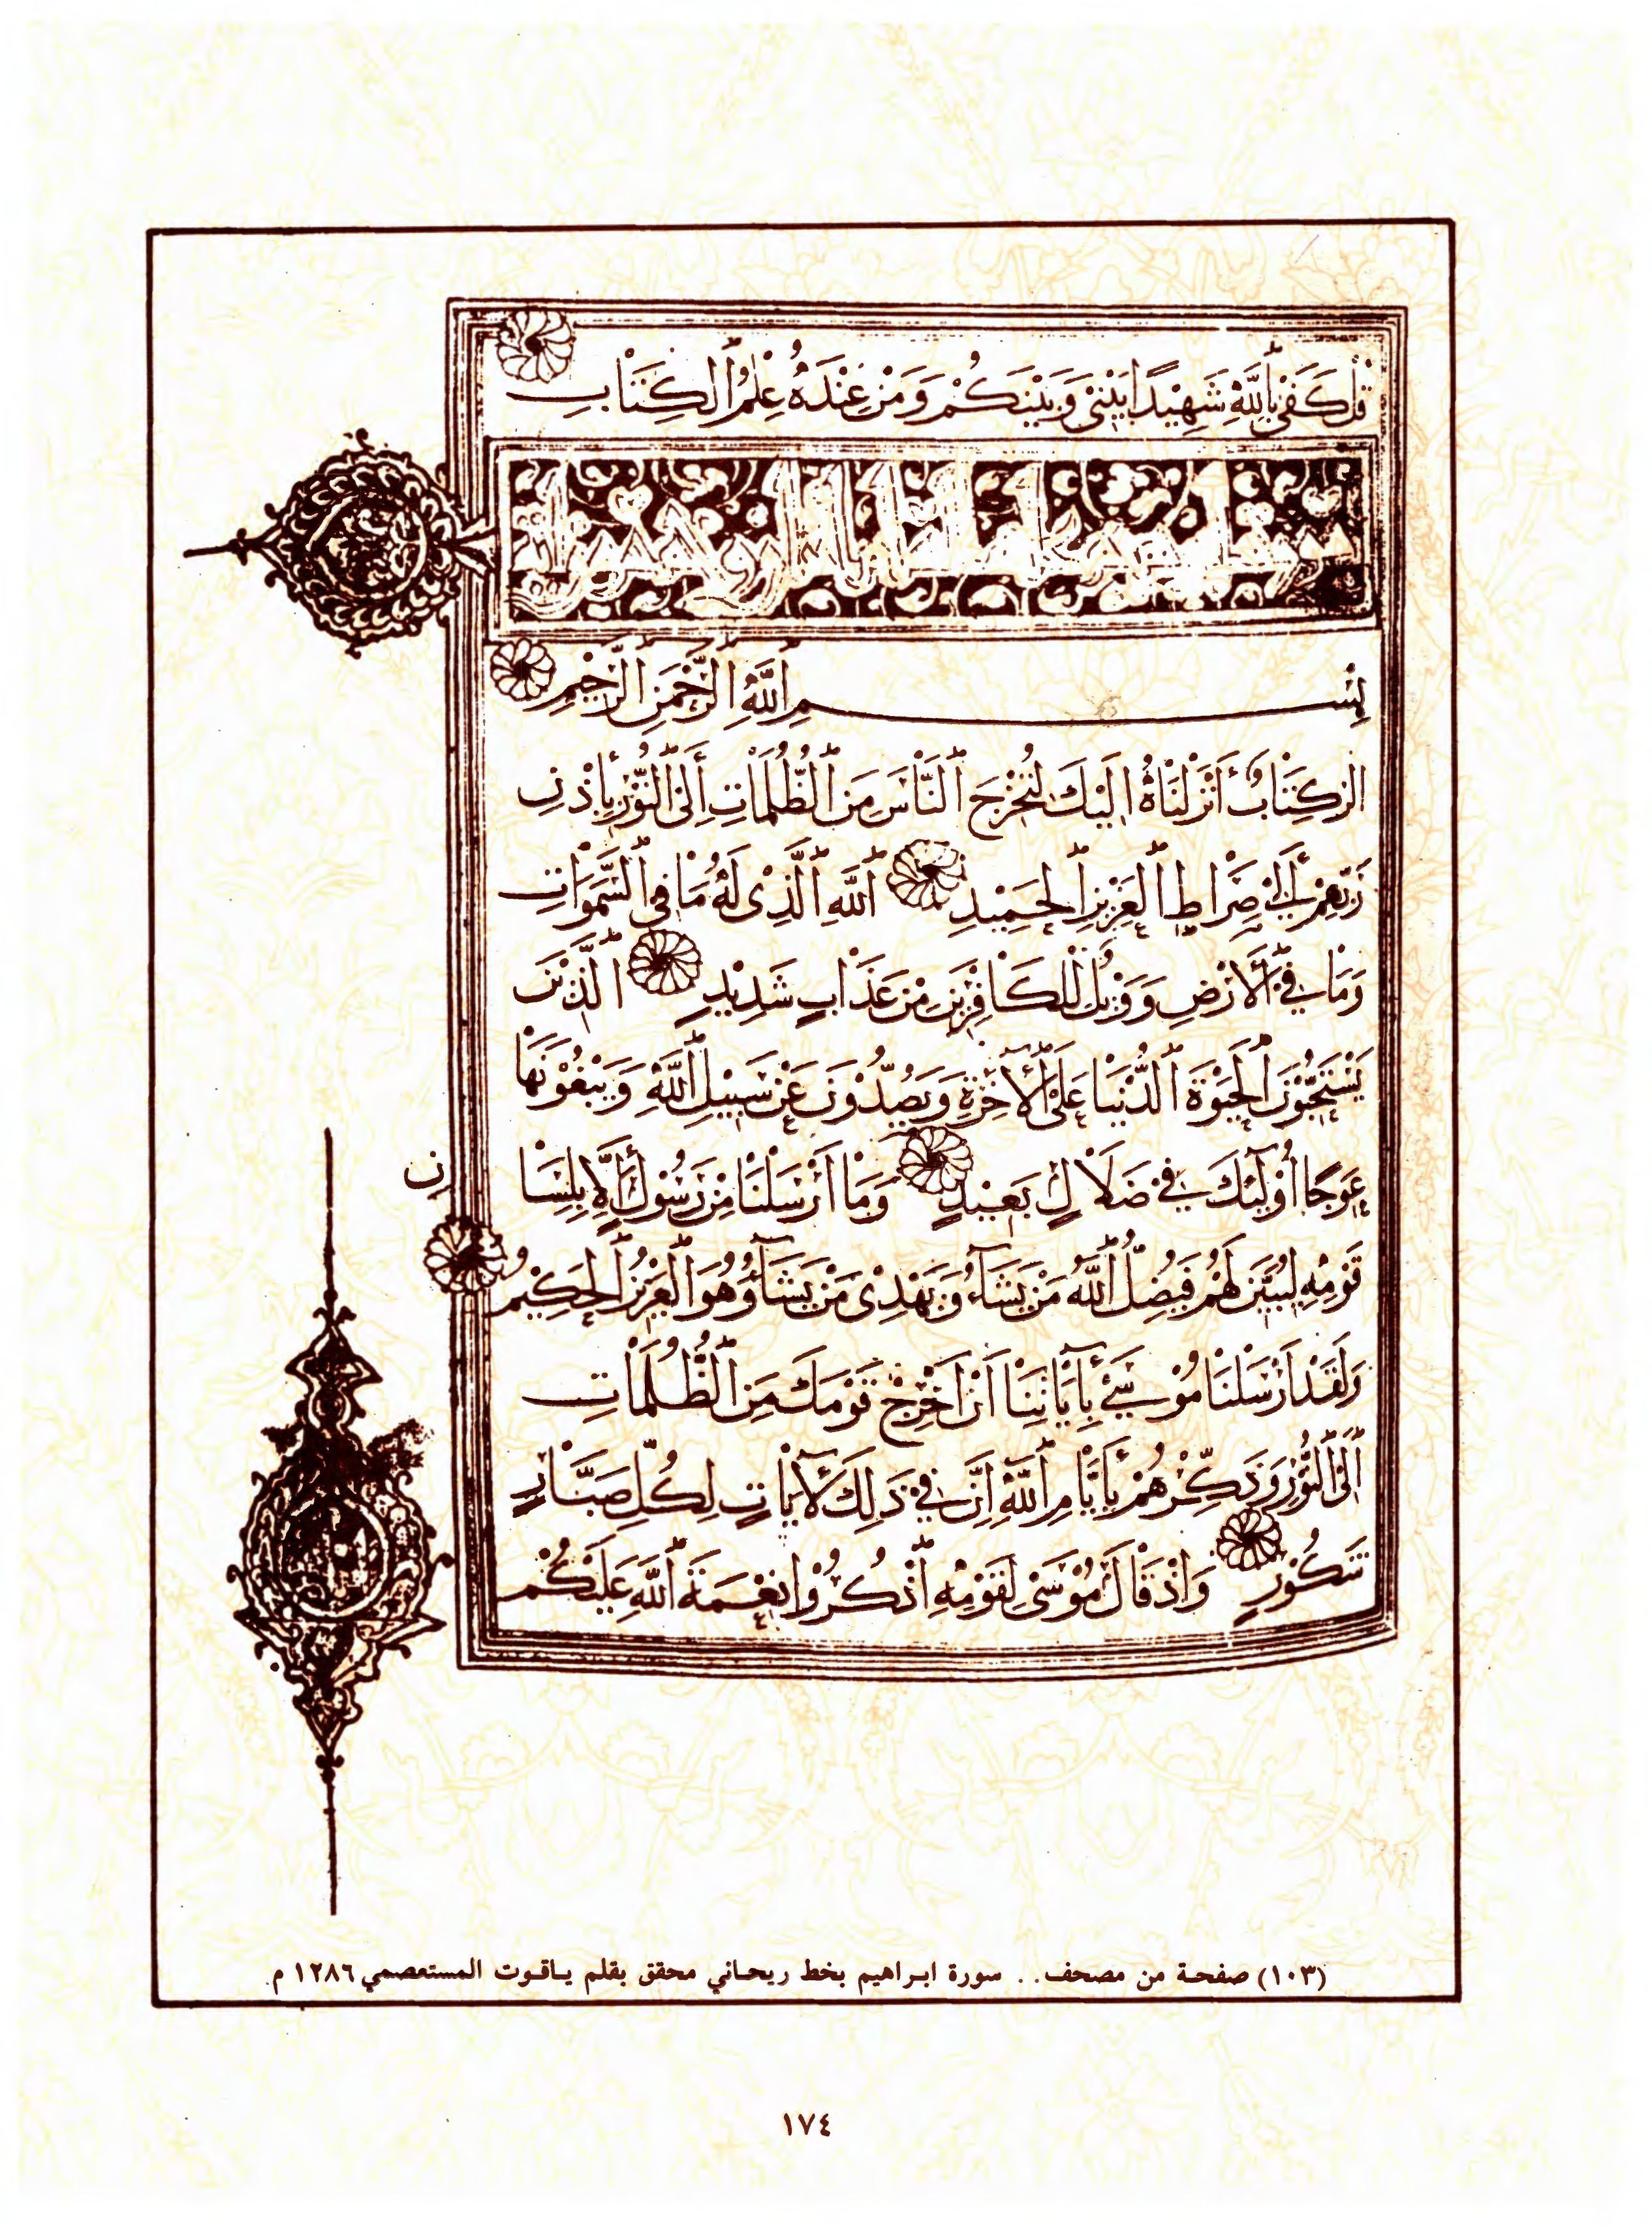 قُلْ كَفَىٰ بِاللَّهِ شَهِيدًا بَيْنِي وَبَيْنَكُمْ وَمَنْ عِنْدَهُ عِلْمُ الْكِتَابِ
بِسْمِ اللَّهِ الرَّحْمَنِ الرَّحِيمِ
الر كِتَابٌ أَنْزَلْنَاهُ إِلَيْكَ لِتُخْرِجَ النَّاسَ مِنَ الظُّلُمَاتِ إِلَى النُّورِ بِإِذْنِ
رَبِّهِمْ إِلَىٰ صِرَاطِ الْعَزِيزِ الْحَمِيدِ اللَّهِ الَّذِي لَهُ مَا فِي السَّمَوَاتِ
وَمَا فِي الْأَرْضِ وَوَيْلٌ لِلْكَافِرِينَ مِنْ عَذَابٍ شَدِيدٍ الَّذِينَ
يَسْتَحِبُّونَ الْحَيَوةَ الدُّنْيَا عَلَى الْآخِرَةِ وَيَصُدُّونَ عَنْ سَبِيلِ اللَّهِ وَيَبْغُونَهَا
عِوَجًا أُولَئِكَ فِي ضَلَالٍ بَعِيدٍ وَمَا أَرْسَلْنَا مِنْ رَسُولٍ إِلَّا بِلِسَا
نِ
قَوْمِهِ لِيُبَيِّنَ لَهُمْ فَيُضِلُّ اللَّهُ مَنْ يَشَاءُ وَيَهْدِي مَنْ يَشَاءُ وَهُوَ الْعَزِيزُ الْحَكِيمُ
وَلَقَدْ أَرْسَلْنَا مُوسَىٰ بِآيَاتِنَا أَنْ أَخْرِجْ قَوْمَكَ مِنَ الظُّلُمَاتِ
إِلَى النُّورِ وَذَكِّرْهُمْ بِأَيَّامِ اللَّهِ إِنَّ فِي ذَلِكَ لَآيَاتٍ لِكُلِّ صَبَّارٍ
شَكُورٍ وَإِذْ قَالَ مُوسَىٰ لِقَوْمِهِ اذْكُرُوا نِعْمَةَ اللَّهِ عَلَيْكُمْ
(١٠٣) صفحة من مصحف . . سورة ابراهيم بخط ريحاني محقق بقلم ياقوت المستعصمي ١٢٨٦ م
١٧٤